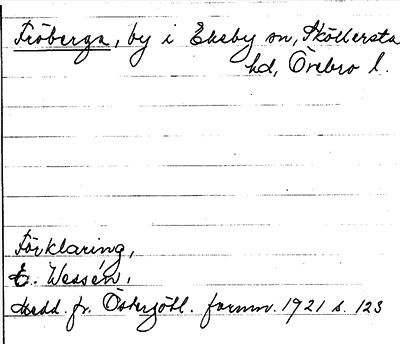 Fröberga, by i Ekeby sn, Sköllersta
hd, Örebro l.
Förklaring,
E. Wessén,
Medd. fr. Östergötl. fornm. 1921 s. 123